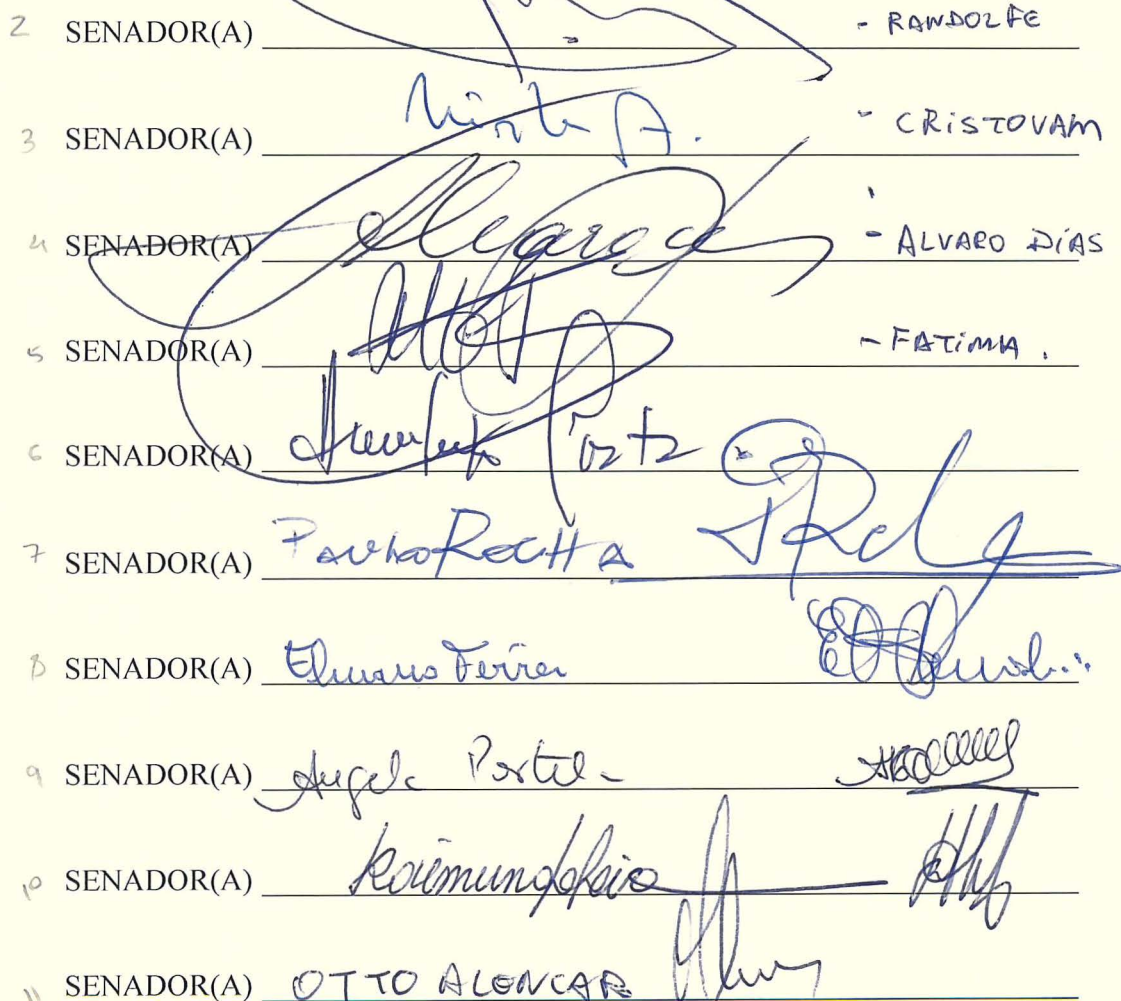 2 SENADOR(A) - RANDOLFE
3 SENADOR(A) - CRISTOVAM
4 SENADOR(A) - ALVARO DIAS
5 SENADOR(A) - FATIMA.
6 SENADOR(A)
7 SENADOR(A) PAULO ROCHA
8 SENADOR(A) Elmano Férrer
9 SENADOR(A) Angela Portela
10 SENADOR(A) Raimundo Lira
11 SENADOR(A) OTTO ALENCAR